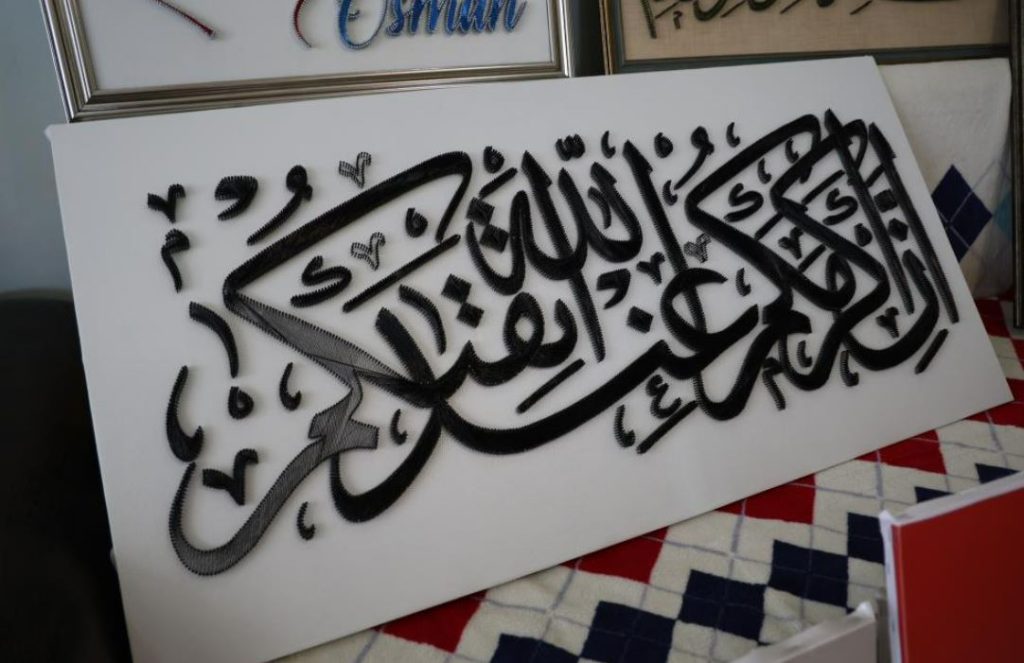 Osman
إن أكرمكم عند الله أتقاكم